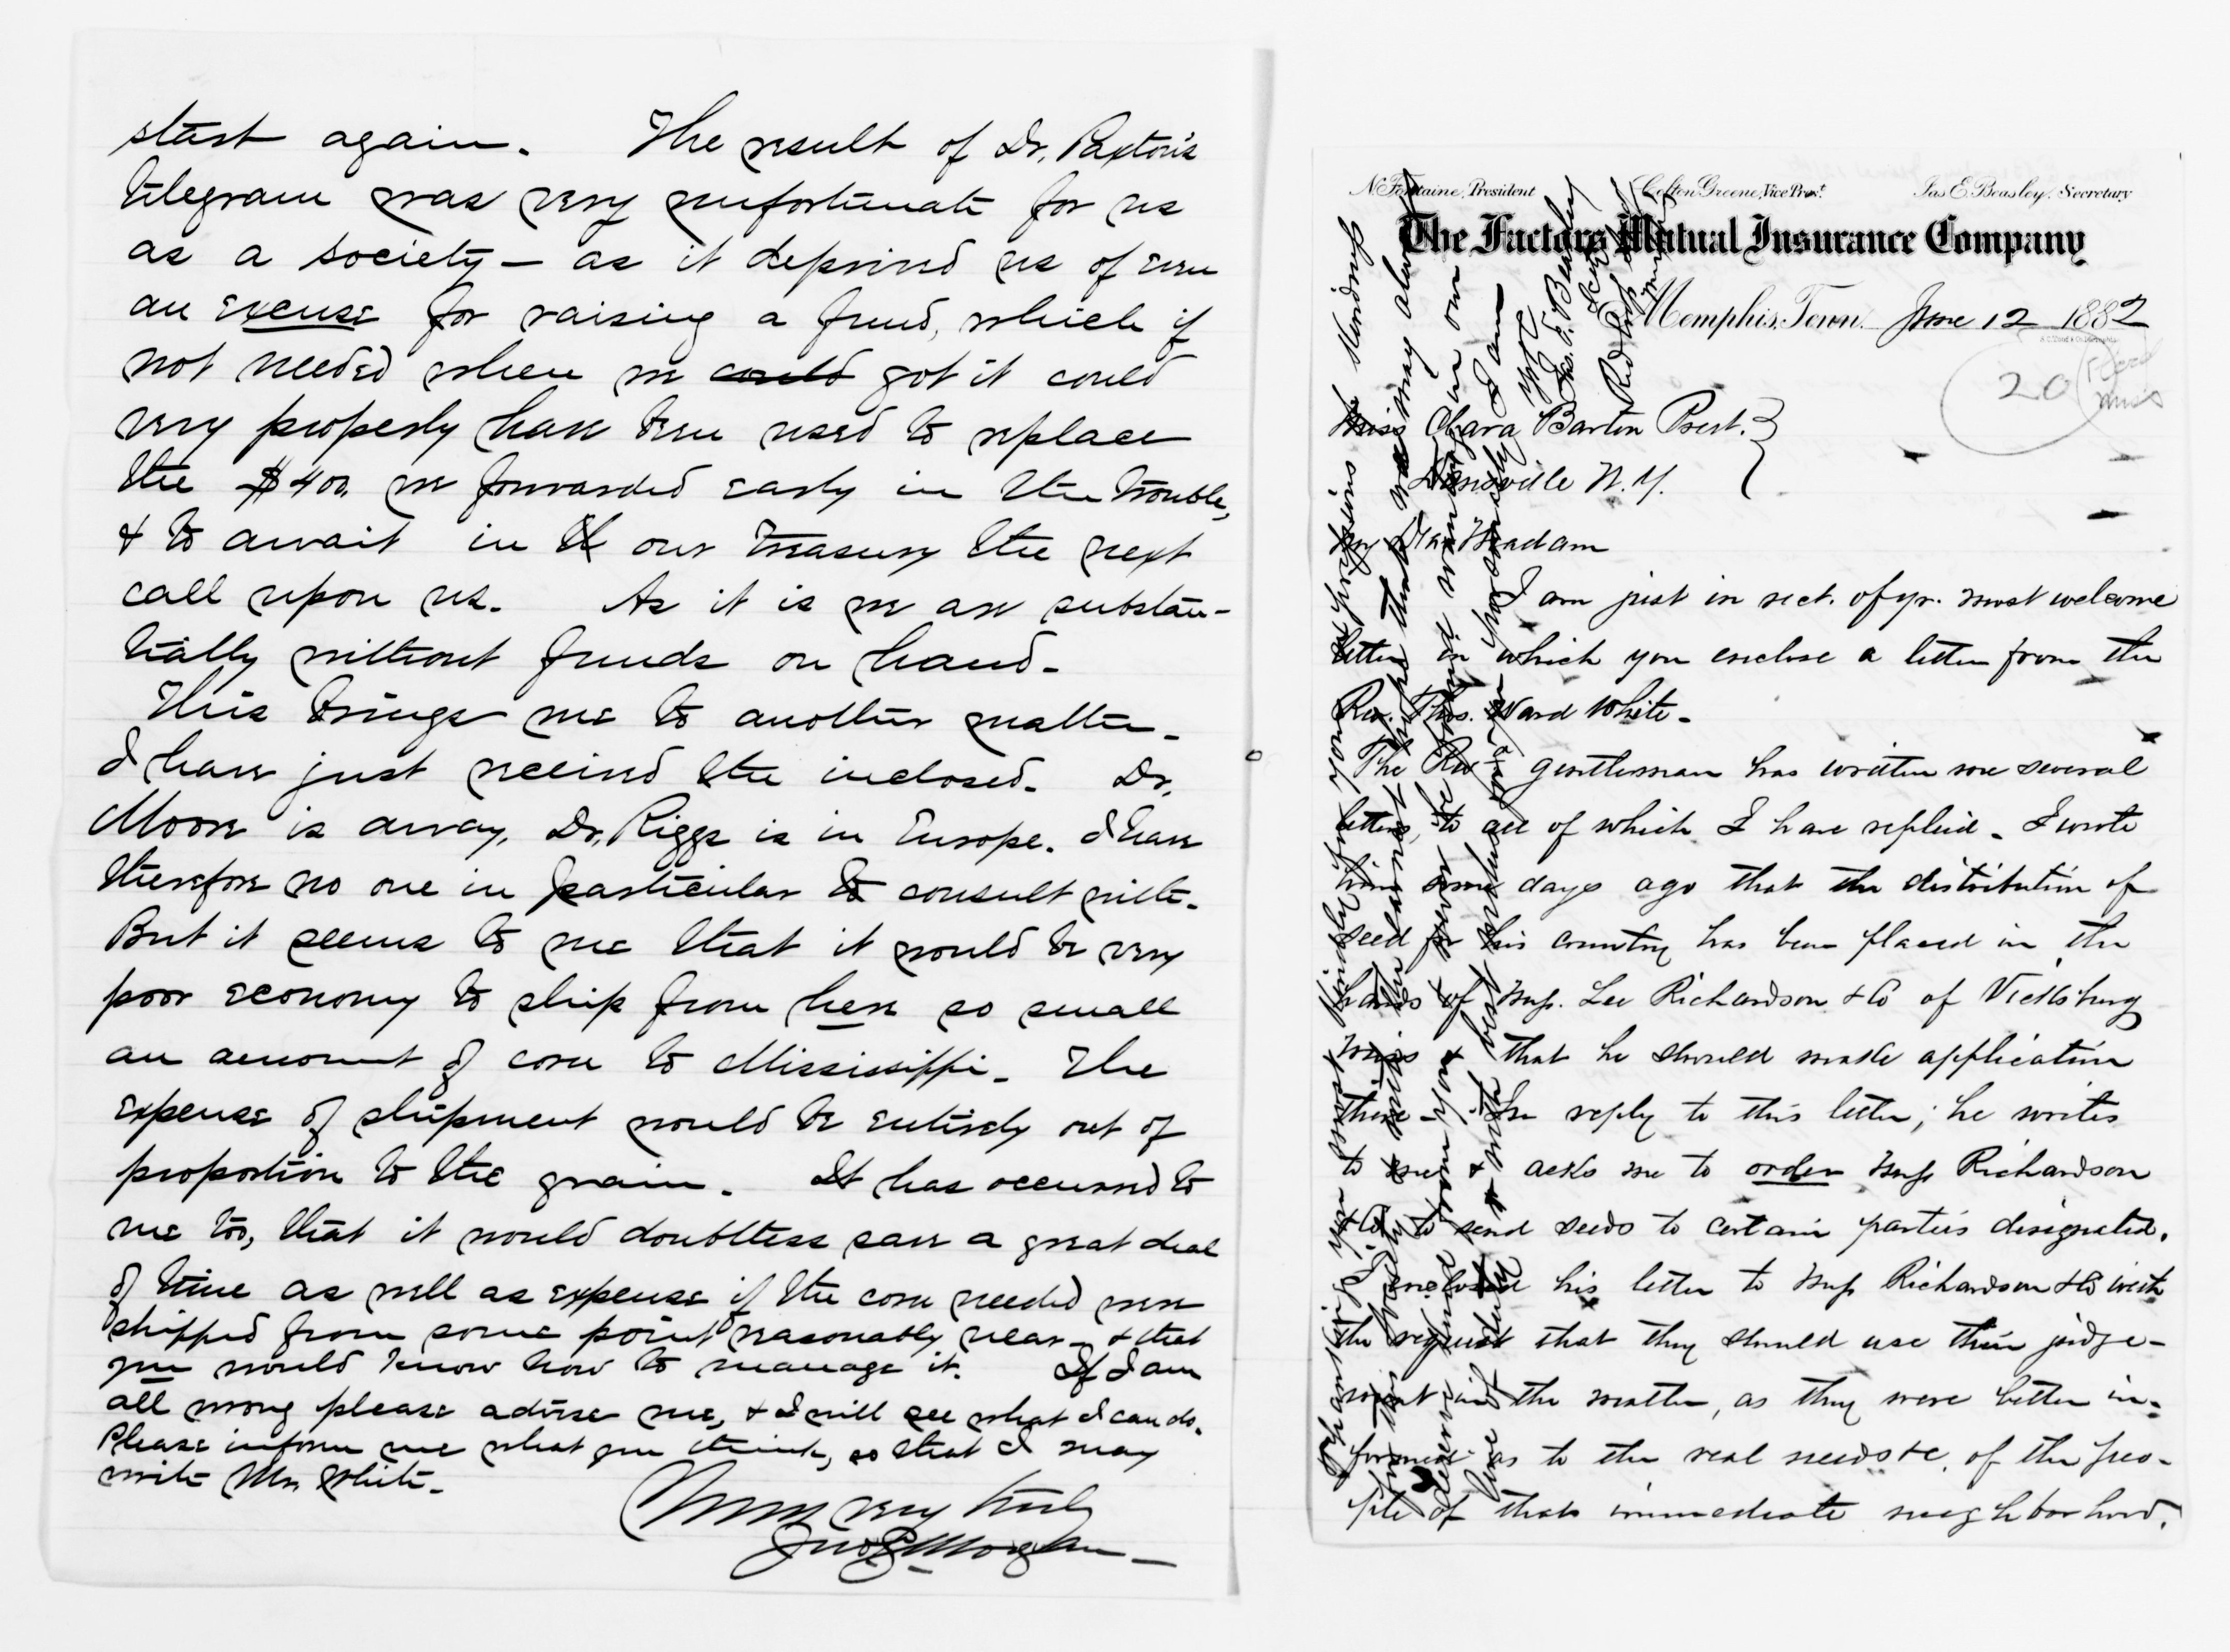 start again. The result of Dr. Paxton's
telegram was very unfortunate for us
as a society — as it deprived us of even
an excuse for raising a fund, which if
not needed when we could got it could
very properly have been used to replace
the $400. we forwarded early in the trouble,
& to await in th our treasury the next
call upon us. As it is we are substan-
tially without funds on hand.
This brings me to another matter.
I have just received the inclosed. Dr.
Moore is away, Dr. Riggs is in Europe. I have
therefore no one in particular to consult with.
But it seems to me that it would be very
poor economy to ship from here so small
an amount of corn to Mississippi. The
expense of shipment would be entirely out of
proportion to the grain. It has occurred to
me too, that it would doubtless save a great deal
of time as well as expense if the corn needed were
shipped from some point reasonably near — & that
you would know how to manage it. If I am
all wrong please advise me, & I will see what I can do.
Please inform me what you think, so that I may
write Mr. White.
Yours very truly
Jno P Morgan
N. Fontaine, President Colton Greene, Vice Prest. Jas E. Beasley, Secretary
The Factors Mutual Insurance Company
Memphis, Tenn. June 12 1882
20
Miss Clara Barton Prest.
Dansville N.Y.
My Dear Madam
I am just in rect. of yr. most welcome
letter in which you enclose a letter from the
Rev. Thos. Ward White.
The Rev gentleman has written me several
letters, to all of which I have replied. I wrote
him some days ago that the distribution of
seed for his country has been placed in the
hands of Mess. Lee Richardson & Co of Vicksburg
Miss & that he should make application
there. In reply to this letter; he writes
to me & asks me to order Mess Richardson
& Co to send seeds to certain parties designated.
I enclosed his letter to Mess Richardson & Co with
the request that they should use their judge-
ment in the matter, as they were better in-
formed as to the real needs &c. of the peo-
ple of that immediate neighborhood.
Thanking you most kindly for your expressions of kindness
for this Society & with the earnest hope that we may always
deserve some from you & never be found wanting in our
line of duty & with best wishes for you personally I am
yrs &c
Jas. E. Beasley
Secty